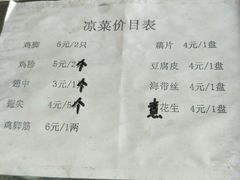 凉菜价目表
鸡脚 5元/2只
鸡珍 5元/2个
翅中 3元/1个
翅尖 4元/5个
鸡脚筋 6元/1两
藕片 4元/1盘
豆腐皮 4元/1盘
海带丝 4元/1盘
煮花生 4元/1盘